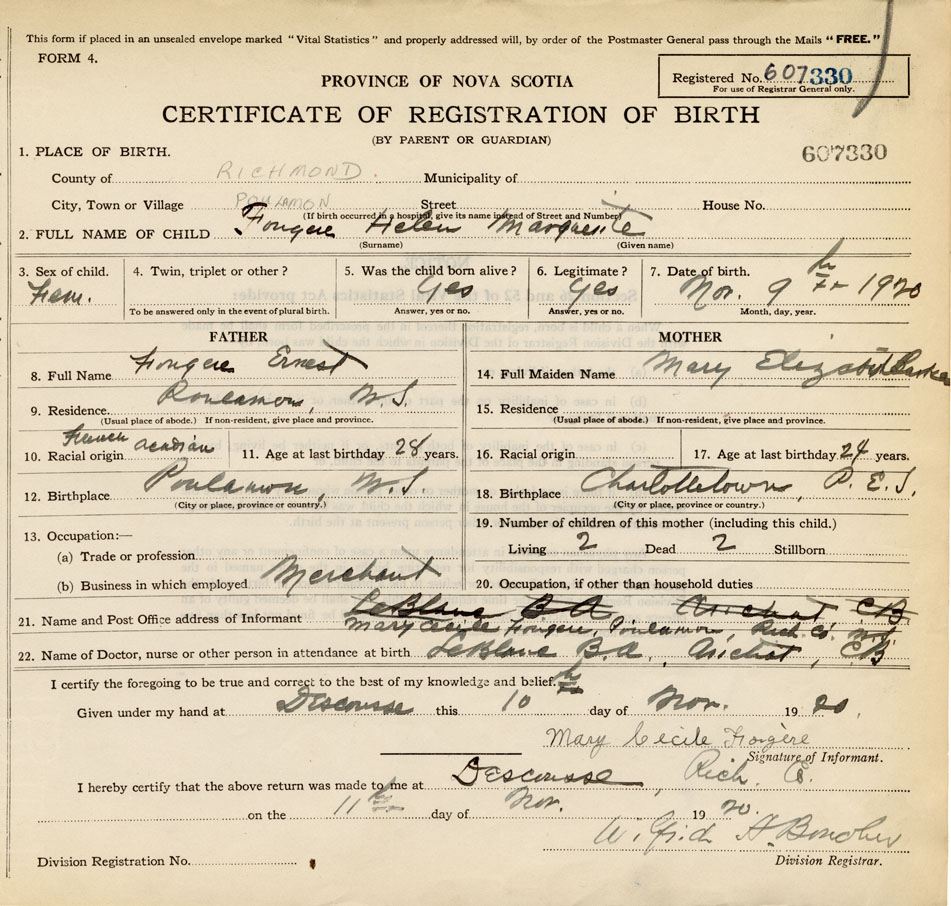 This form if placed in an unsealed envelope marked "Vital Statistics" and properly addressed will, by order of the Postmaster General pass through the Mails "FREE."
FORM 4.
Registered No. 607330
For use of Registrar General only.
PROVINCE OF NOVA SCOTIA
CERTIFICATE OF REGISTRATION OF BIRTH
(BY PARENT OR GUARDIAN)
607330
1. PLACE OF BIRTH.
County of RICHMOND. Municipality of
City, Town or Village POULAMON Street House No.
(If birth occurred in a hospital, give its name instead of Street and Number)
2. FULL NAME OF CHILD Fougere Helen Marguerite
(Surname) (Given name)
3. Sex of child. 4. Twin, triplet or other? 5. Was the child born alive? 6. Legitimate? 7. Date of birth.
Fem. Yes Yes Nov. 9th 1920
To be answered only in the event of plural birth. Answer, yes or no. Answer, yes or no. Month, day, year.
FATHER MOTHER
8. Full Name Fougere Ernest 14. Full Maiden Name Mary Elizabeth
9. Residence Poulamon, N.S. 15. Residence
(Usual place of abode.) If non-resident, give place and province. (Usual place of abode.) If non-resident, give place and province.
10. Racial origin French Acadian 11. Age at last birthday 28 years. 16. Racial origin 17. Age at last birthday 24 years.
12. Birthplace Poulamon, N.S. 18. Birthplace Charlottetown, P.E.I.
(City or place, province or country.) (City or place, province or country.)
13. Occupation:— 19. Number of children of this mother (including this child.)
(a) Trade or profession Living 2 Dead 2 Stillborn
(b) Business in which employed Merchant 20. Occupation, if other than household duties
LeBlanc B A Arichat C B
21. Name and Post Office address of Informant Mary Cecile Fougere, Poulamon, Rich. Co. N.S.
22. Name of Doctor, nurse or other person in attendance at birth LeBlanc B.A., Arichat, C B
I certify the foregoing to be true and correct to the best of my knowledge and belief.
Given under my hand at Descousse this 10th day of Nov. 1920.
Mary Cecile Fougère
Signature of Informant.
I hereby certify that the above return was made to me at Descousse, Rich. Co.
on the 11th day of Nov. 1920.
Wilfrid A.
Division Registration No. Division Registrar.